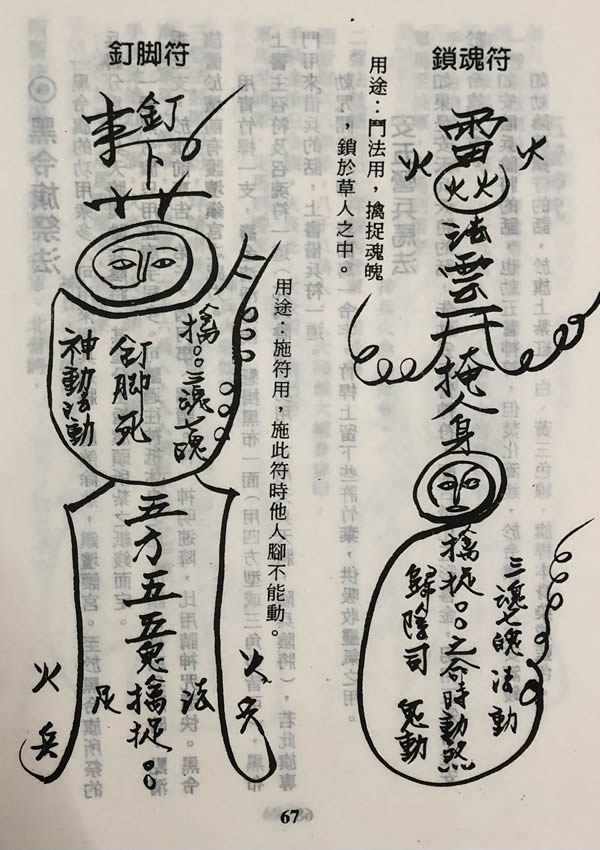 鎖魂符
用途：鬥法用，擒捉魂魄
，鎖於草人之中。
雷
火 火火 火
法雲
掩人身
三魂七魄 法動
擒捉。。之命時動煞
解陰司 兔動
釘脚符
用途：施符用，施此符時他人腳不能動。
釘
下
擒。。三魂七魄
釘脚死
神動法動
五方五五鬼擒捉。。
法
火兵
火兵
67